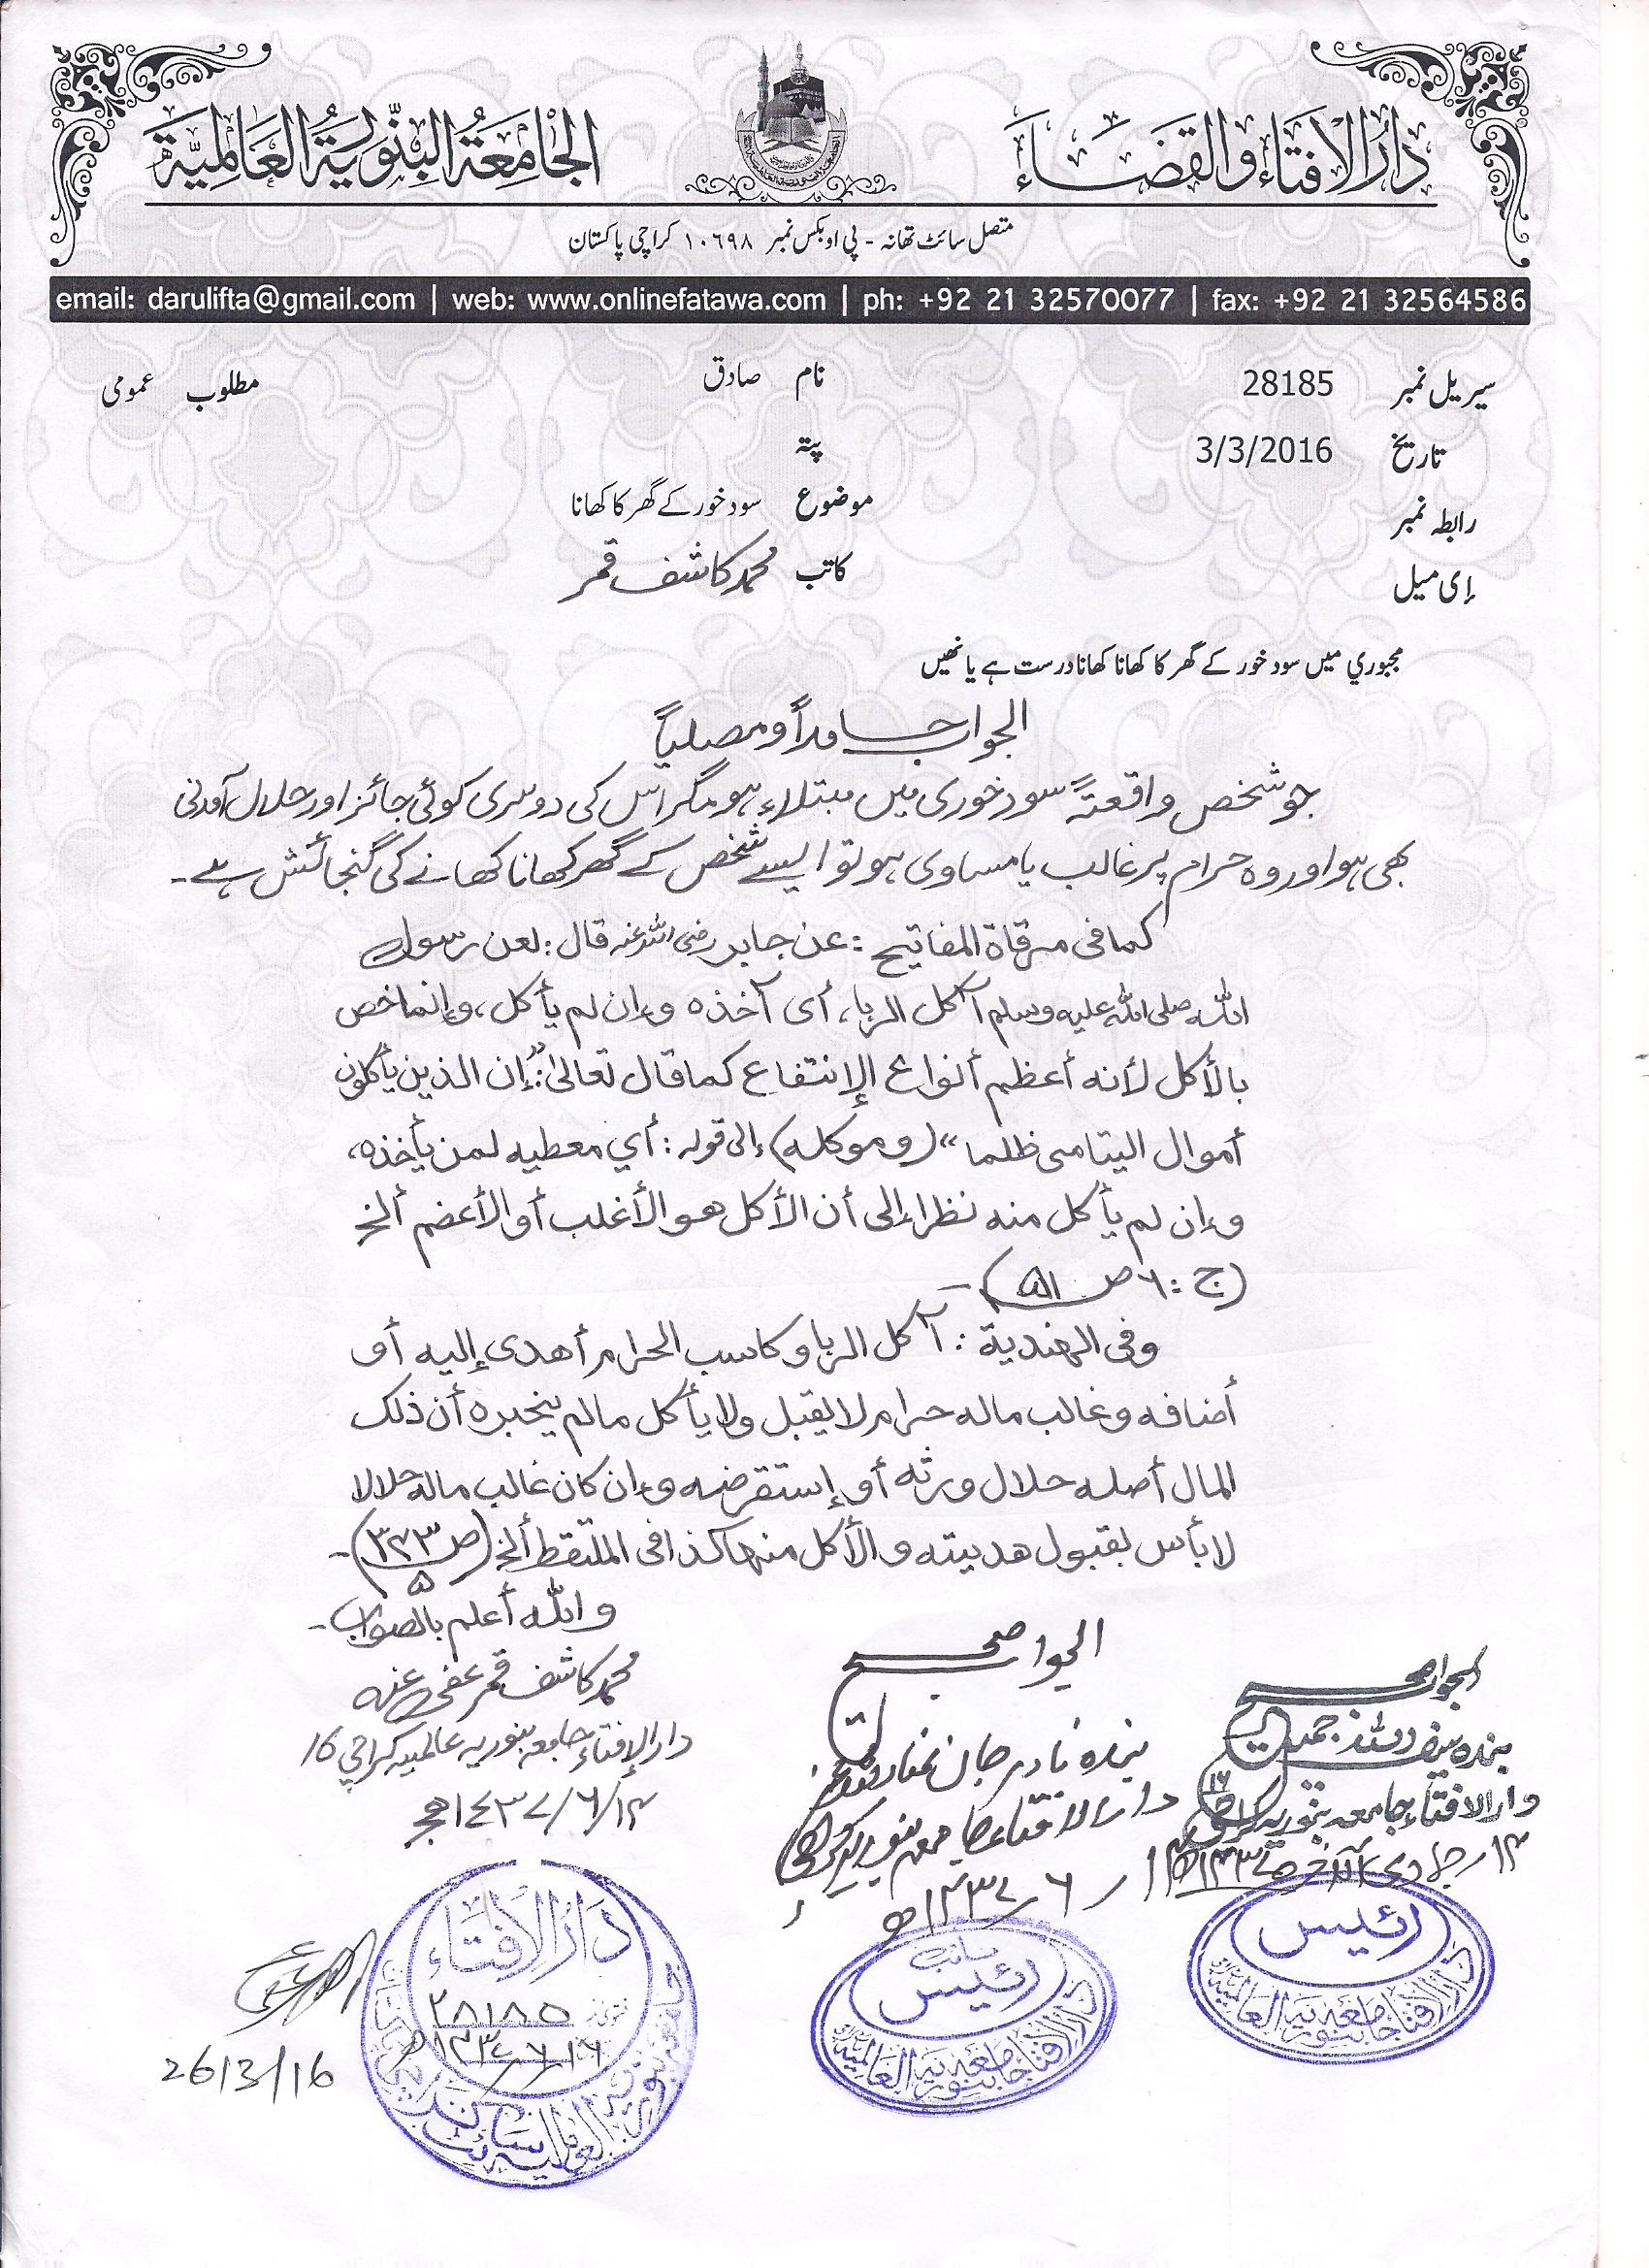 دار الافتاء والقضاء
الجامعة البنورية العالمية
متصل سائٹ تھانہ - پی او بکس نمبر ١٠٦٩٨ کراچی پاکستان
email: darulifta@gmail.com | web: www.onlinefatawa.com | ph: +92 21 32570077 | fax: +92 21 32564586
سیریل نمبر 28185 نام صادق مطلوب عمومی
تاریخ 3/3/2016 پتہ
رابطہ نمبر موضوع سود خور کے گھر کا کھانا
ای میل کاتب محمد کاشف قمر
مجبوري میں سود خور کے گھر کا کھانا کھانا درست ہے یا نھیں
الجواب حامداً ومصلیاً
جو شخص واقعتہً سود خوری میں مبتلاء ہو مگر اس کی دوسری کوئی جائز اور حلال آمدنی
بھی ہو اور وہ حرام پر غالب یا مساوی ہو تو ایسے شخص کے گھر کھانا کھانے کی گنجائش ہے۔
كما فی مرقاة المفاتیح : عن جابر رضی اللہ عنہ قال : لعن رسول
اللہ صلی اللہ علیہ وسلم آكل الربا، أی آخذه وإن لم يأكل، وإنما خص
بالأكل لأنه أعظم أنواع الإنتفاع كما قال تعالیٰ : "إن الذين يأكلون
أموال الیتامی ظلما" (وموكله) إلی قوله : أي معطیه لمن يأخذه،
وإن لم يأكل منه نظرا إلی أن الأكل هو الأغلب أو الأعضم ألخ
(ج : ٦ ص ۵۱)-
وفی الهندية : آكل الربا وكاسب الحرام أهدی إليه أو
أضافه وغالب ماله حرام لا يقبل ولا يأكل مالم يخبره أن ذلك
المال أصله حلال ورثه أو إستقرضه وإن كان غالب ماله حلالا
لا بأس بقبول هديته والأكل منها كذا فی الملتقط ألخ (ص ٣٤٣)-
۵
واللہ أعلم بالصواب۔
محمد کاشف قمر عفی عنہ
دار الإفتاء جامعہ بنوریہ عالمیہ کراچی 16
١٤٣٧/٦/١٤ھ
الجواب صحیح
بندہ نادر جان
دار الافتاء جامعہ بنوریہ کراچی
الجواب صحیح
بندہ سیف اللہ جمیل
دار الافتاء جامعہ بنوریہ کراچی
رئیس
دار الافتا جامعہ بنوریہ العالمیہ
نائب
رئیس
دار الافتا جامعہ بنوریہ العالمیہ
دار الافتاء
فتوی نمبر ٢٨١٨٥
26/3/16